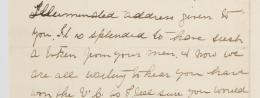 Illuminated address given to
you. It is splendid to have such
a token from your men. & now we
are all waiting to hear you have
won the V.C. so I feel sure you would